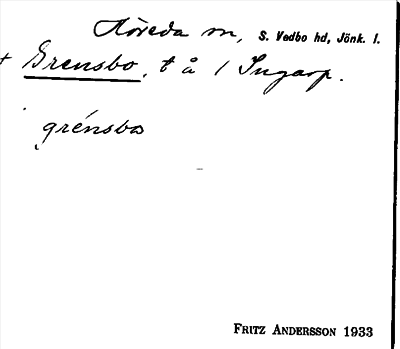 Höreda sn, S. Vedbo hd, Jönk. l.
+ Grensbo, t å 1 Ingarp.
grénsbo
FRITZ ANDERSSON 1933